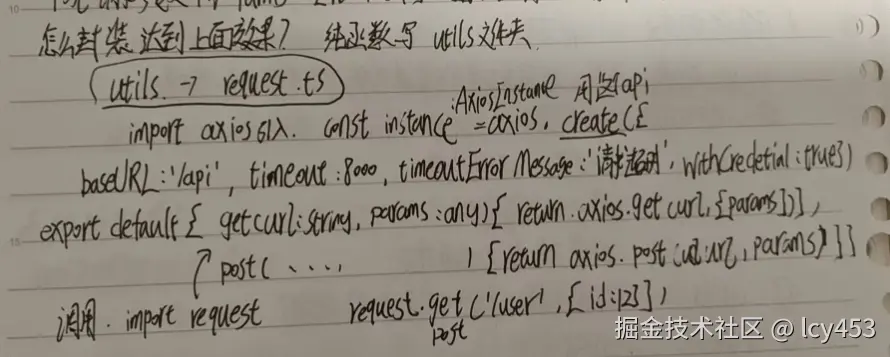 怎么封装达到上面效果? 纯函数写 utils文件夹
utils. → request.ts
:AxiosInstance 用這个api
import axios引入. const instance =axios. create({
baseURL:'/api', timeout:8000, timeoutErrorMessage:'请求超时', withCredetial:true})
export default { get(url:string, params:any){ return.axios.get(url,{params})},
post( ..... ){return axios.post(url:url,params)}}
调用. import request request.get('/user',{id:123});
post
掘金技术社区 @ lcy453